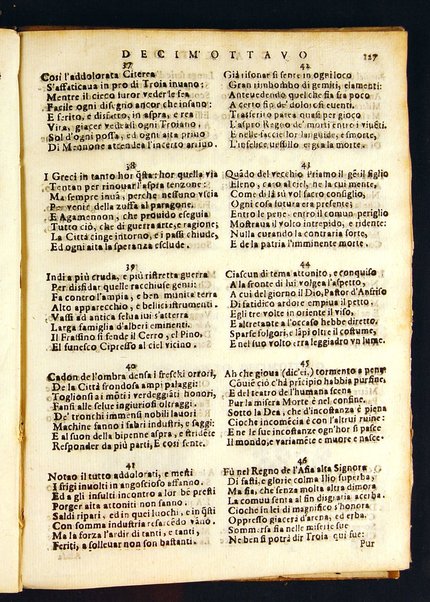 DECIM'OTTAVO
127
37
Così l'addolorata Citerea
S'affaticaua in pro di Troia inuano:
Mentre il cieco furor veder le fea
Facile ogni disegno ancor che insano:
E ferito, e disfatto, in aspra, e rea
Vita, giacer vedeasi ogni Troiano,
Sol d'ogni possa, ed ogni alta priuo
Di Mennone attendea l'incerto arriuo.
38
I Greci in tanto hor q̃sta: hor quella via
Tentan per rinouar l'aspra tenzone:
Ma sempre inuã, perche nessuno vscia
Per venir della zuffa al paragone.
E Agamennon, che prouido eseguia
Tutto ciò, che di guerra arte, e ragione,
La Città cinge intorno, e i passi chiude,
Ed ogni alta speranza esclude.
39
Indi a più cruda, e più ristretta guerra
Per disfidar quelle racchiuse genti:
Fa contro l'ampia, e ben munita terra
Alto apparecchio, e bellici istrumenti.
Massi ad antica selua iui s'atterra
Larga famiglia d'alberi eminenti.
Il Frassino si fende il Cerro, el Pino.
El funesco Cipresso al ciel vicino.
40
Cadon de l'ombra densa i freschi orrori,
De la Città frondosa ampi palaggi:
Toglionsi a i mõti i verdeggiati honori,
Fansi alle selue ingiuriosi oltraggi.
De' tronchi immensi nobili lauori
Machine fanno i fabri industri, e saggi:
E al suon della bipenne aspra, e stridẽte
Responder da più parti, E così sente.
41
Notao il tutto addolorati, e mesti
I frigi inuolti in angoscioso affanno.
Ed a gli insulti incontro a lor bẽ presti
Porger aita attoniti non sanno.
Saldi ripari, ed in quei luochi, e in q̃sti
Con somma industria refarcẽdo vāno.
Ma la forza l'ardir di tanti, e tanti
Feriti, a solleuar non son bastanti.
42
Già risonar si sente in ogni loco
Gran rimbombo di gemiti, e lamenti:
Antevedendo quel che fia fra poco
A certo fin de' dolorosi euenti.
Trasferito parea quasi per gioco
L'aspro Regno de' morti entro i viuẽti.
E nelle faccie lor languide, e smorte,
L'infelice vessillo ergia la morte.
43
Quãdo del vecchio Priamo il gẽtil figlio
Eleno, cato al ciel, ne la cui mente,
Come di là sù vol sacro consiglio,
Ogni cosa futura era presente:
Entro le pene entro il commun periglio
Mostraua il volto intrepido, e ridente:
Nulla curando la contraria sorte,
E de la patria l'imminente morte.
44
Ciascun di tema attonito, e conquiso
A la fronte di lui volgea l'aspetto,
A cui del giorno il Dio, Pastor d'Anfriso
Di fatidico ardor e empiua il petto.
Egli tre volte in oriente il viso,
E altretante a l'occaso hebbe diretto,
Sparse folgori, e lãpi oltre il costume,
E nel suo volto erra leggiadro vn lume.
45
Ah che gioua (dic'ei,) tormento a pene
Couiẽ ciò c'hà prĩcipio habbia pur fine,
E del teatro de l'humana scena
Pur la misera Morte è nel confine.
Sotto la Dea, che d'incostanza è piena
Cioche incomẽcia è con l'altrui ruine:
E ne le sue incostanze ogn'hor si pasce
Il mondo, e variamẽte e muore e nasce.
46
Fù nel Regno de l'Asia alta Signora
Di fasti, e glorie colma Ilio superba,
Ma fia, che senza molta altra dimora
La comun senta al fin disgratia acerba.
Cioche in lei di magnifico s'honora
Oppresso giacerà d'arena, ed erba.
Sommersa fia nelle miserie sue
Ne ben si potrà dir Troia quì fue:
Pur